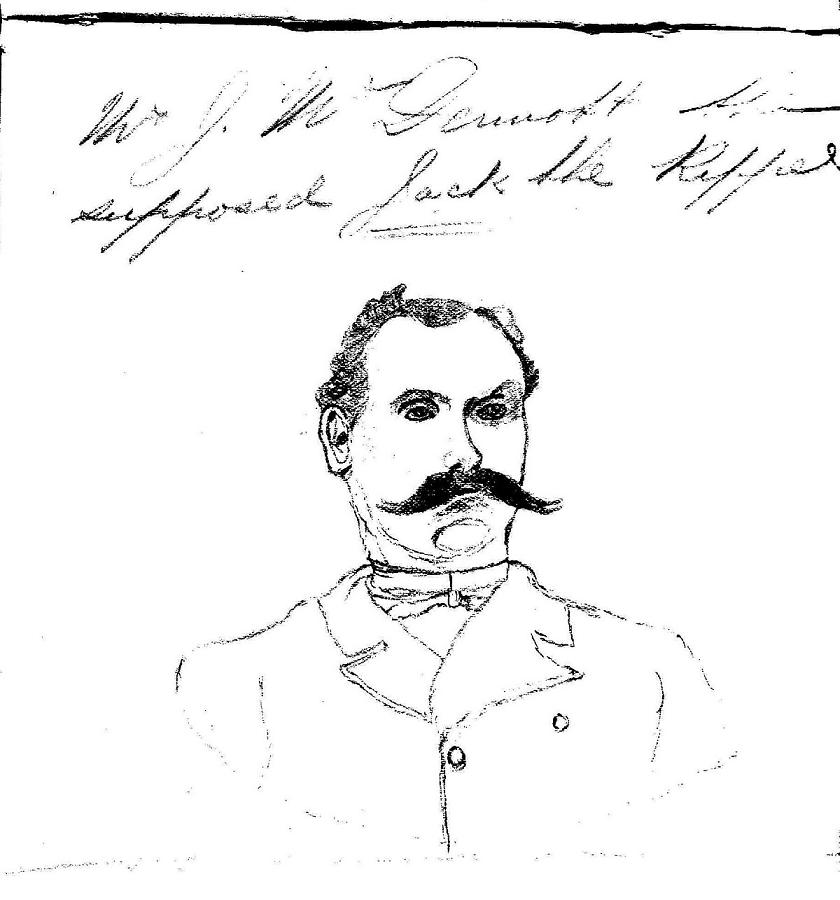 Mr J. McDermott the
supposed Jack the Ripper